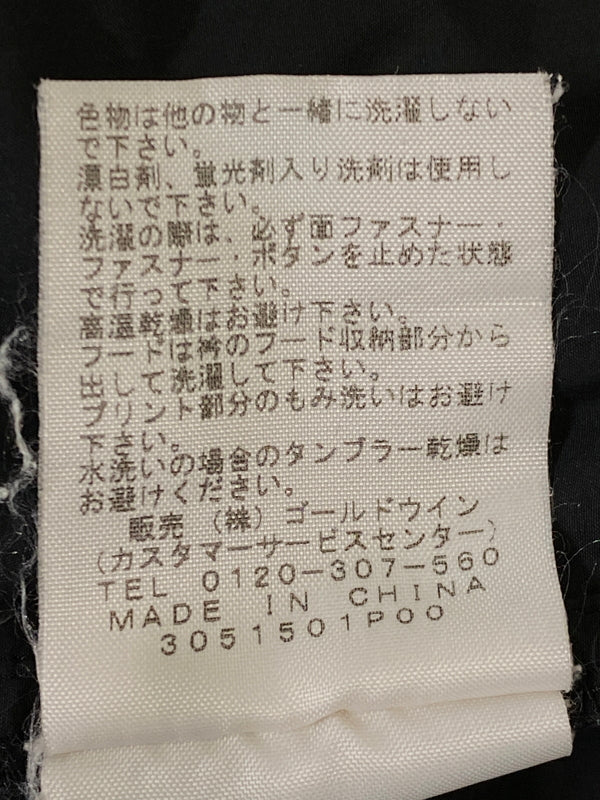 色物は他の物と一緒に洗濯しない
で下さい。
漂白剤、蛍光剤入り洗剤は使用し
ないで下さい。
洗濯の際は、必ず面ファスナー・
ファスナー・ボタンを止めた状態
で行って下さい。
高温乾燥はお避け下さい。
フードは衿のフード収納部分から
出して洗濯して下さい。
プリント部分のもみ洗いはお避け
下さい。
水洗いの場合のタンブラー乾燥は
お避けください。
販売 (株) ゴールドウイン
(カスタマーサービスセンター)
TEL 0120-307-560
MADE IN CHINA
3051501P00